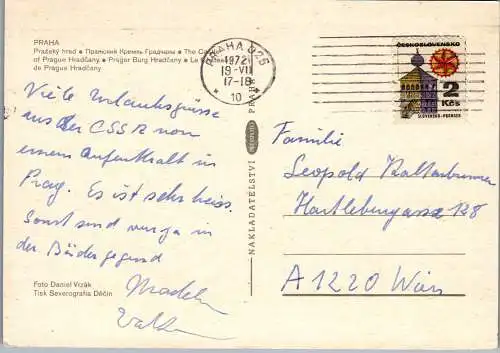 PRAHA
Pražský hrad • Пражский Кремль-Градчаны • The Castle
of Prague Hradčany • Prager Burg Hradčany • Le
de Prague Hradčany
PRAHA 025
1972
19-VII
17-18
10
ČESKOSLOVENSKO
2
Kčs
SLOVENSKO-POHRADIE
Viele Urlaubsgrüsse
aus der CSSR von
einem Aufenthalt in
Prag. Es ist sehr heiss.
Sonst sind wir ja in
der Bädergegend
Foto Daniel Vizák
Tisk Severografia Děčín
NAKLADATELSTVÍ PRAHA
Familie
Leopold Kaltenbrunner
Hartlebengasse 128
A 1220 Wien